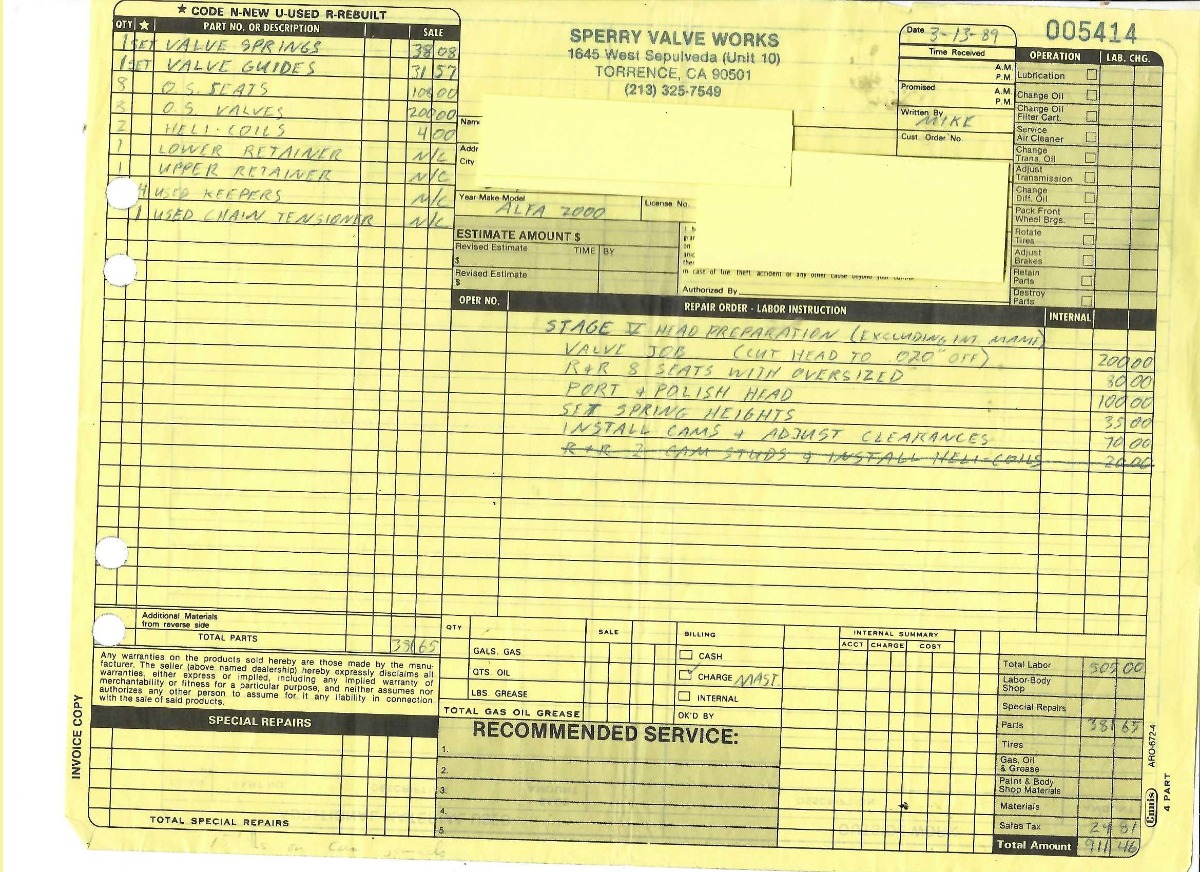 ★ CODE N-NEW U-USED R-REBUILT
QTY ★ PART NO. OR DESCRIPTION SALE
1 SET VALVE SPRINGS 38 08
1 SET VALVE GUIDES 31 57
8 O.S. SEATS 108 00
8 O.S. VALVES 200 00
2 HELI-COILS 4 00
1 LOWER RETAINER N/C
1 UPPER RETAINER N/C
4 USED KEEPERS N/C
1 USED CHAIN TENSIONER N/C
Additional Materials
from reverse side
TOTAL PARTS 381 65
Any warranties on the products sold hereby are those made by the manu-
facturer. The seller (above named dealership) hereby expressly disclaims all
warranties, either express or implied, including any implied warranty of
merchantability or fitness for a particular purpose, and neither assumes nor
authorizes any other person to assume for it any liability in connection
with the sale of said products.
SPECIAL REPAIRS
TOTAL SPECIAL REPAIRS
INVOICE COPY
SPERRY VALVE WORKS
1645 West Sepulveda (Unit 10)
TORRENCE, CA 90501
(213) 325-7549
Name
Addr
City
Year-Make-Model
ALFA 2000
License No.
ESTIMATE AMOUNT $
Revised Estimate TIME BY
$
Revised Estimate
$
in case of fire theft, accident or any other cause beyond your control
Authorized By
Date 3-13-89
Time Received
A.M.
P.M.
Promised A.M.
P.M.
Written By
MIKE
Cust. Order No.
005414
OPERATION LAB. CHG.
Lubrication
Change Oil
Change Oil
Filter Cart.
Service
Air Cleaner
Change
Trans. Oil
Adjust
Transmission
Change
Diff. Oil
Pack Front
Wheel Brgs.
Rotate
Tires
Adjust
Brakes
Retain
Parts
Destroy
Parts
OPER NO. REPAIR ORDER - LABOR INSTRUCTION INTERNAL
STAGE V HEAD PREPARATION (EXCLUDING INT. MANIF)
VALVE JOB (CUT HEAD TO .020" OFF) 200 00
R+R 8 SEATS WITH OVERSIZED 80 00
PORT & POLISH HEAD 100 00
SET SPRING HEIGHTS 35 00
INSTALL CAMS & ADJUST CLEARANCES 70 00
R+R 2 CAM STUDS & INSTALL HELI-COILS 20 00
QTY SALE
GALS. GAS
QTS. OIL
LBS. GREASE
TOTAL GAS OIL GREASE
BILLING
CASH
CHARGE MAST.
INTERNAL
OK'D BY
INTERNAL SUMMARY
ACCT CHARGE COST
RECOMMENDED SERVICE:
1.
2.
3.
4.
5.
Total Labor 505 00
Labor-Body
Shop
Special Repairs
Parts 381 65
Tires
Gas, Oil
& Grease
Paint & Body
Shop Materials
Materials
Sales Tax 24 81
Total Amount 911 46
ARO-672-4
Ennis
4 PART